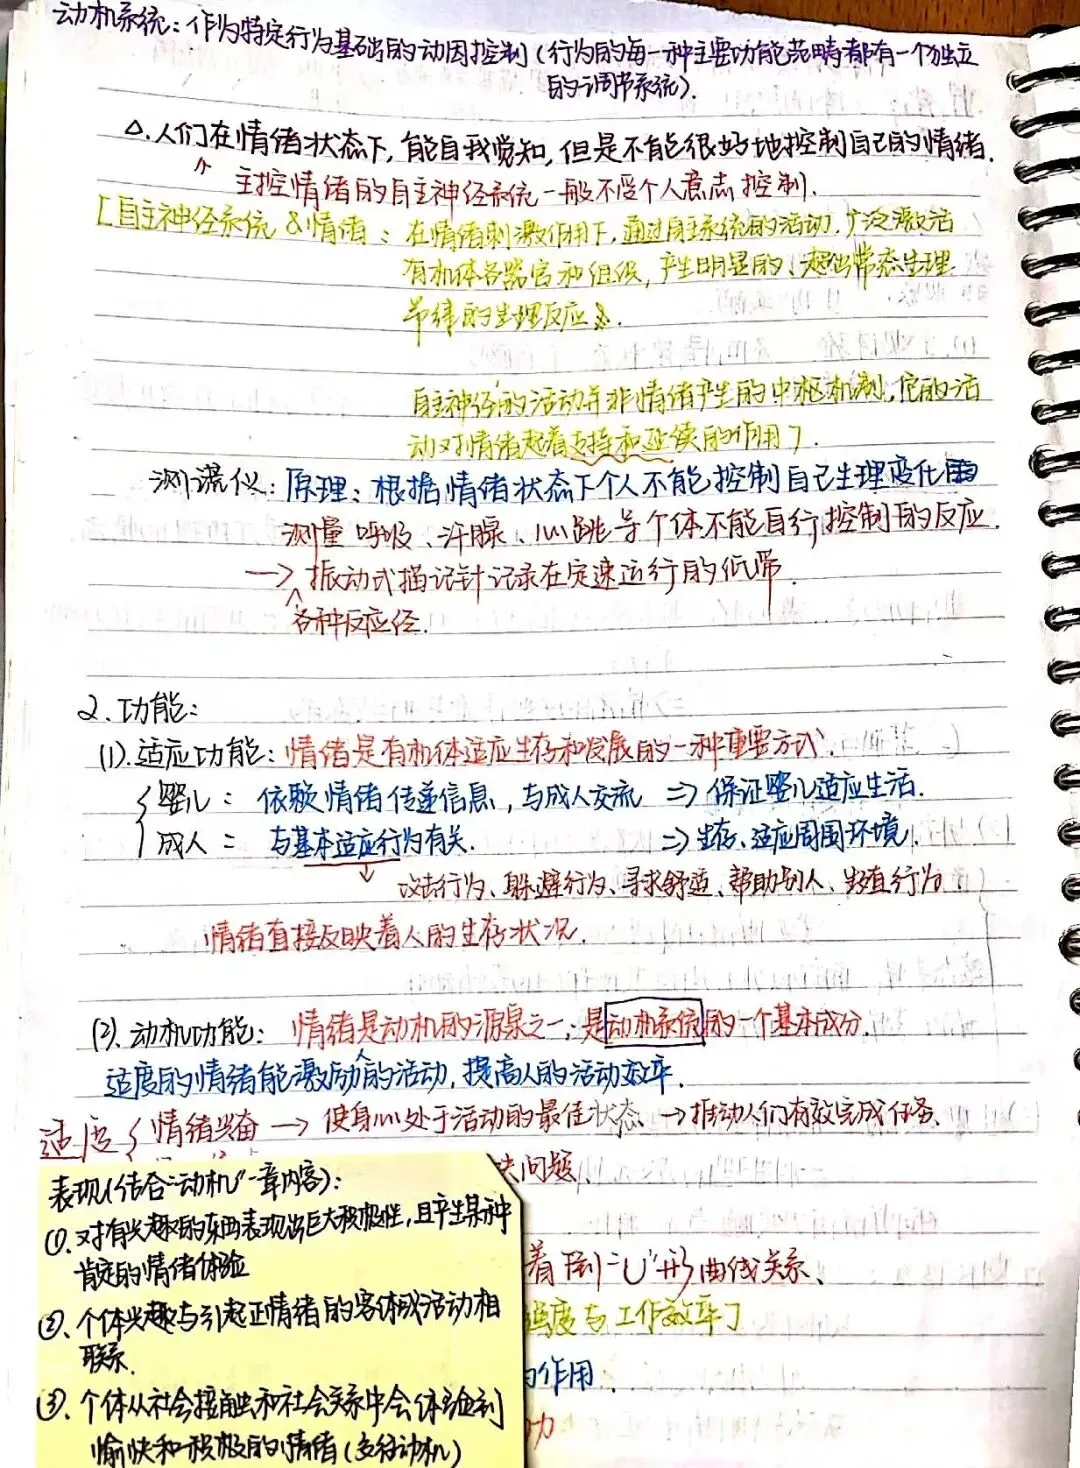 动机系统：作为特定行为基础的动因控制(行为的每一种主要功能范畴都有一个独立
的调节系统).
△.人们在情绪状态下,能自我觉知,但是不能很好地控制自己的情绪.
主控情绪的自主神经系统一般不受个人意志控制.
[自主神经系统&情绪：在情绪刺激作用下,通过自主系统的活动,广泛激活
有机体各器官和组织,产生明显的、超出常态生理
节律的生理反应.
自主神经的活动并非情绪产生的中枢机制,它的活
动对情绪起着支持和延续的作用].
测谎仪：原理：根据情绪状态下个人不能控制自己生理变化
测量呼吸、汗腺、心跳等个体不能自行控制的反应.
→振动式描记针记录在定速运行的纸带.
各种反应经.
2.功能：
(1).适应功能：情绪是有机体适应生存和发展的一种重要方式.
婴儿：依靠情绪传递信息,与成人交流 ⇒保证婴儿适应生活.
成人：与基本适应行为有关. ⇒生存、适应周围环境.
↓攻击行为、躲避行为、寻求舒适、帮助别人、生殖行为
情绪直接反映着人的生存状况.
(2).动机功能：情绪是动机的源泉之一;是动机系统的一个基本成分.
适度的情绪能激励人的活动,提高人的活动效率.
适度{情绪兴奋→使身心处于活动的最佳状态.→推动人们有效完成任务.
问题.
表现(结合"动机"一章内容)：
①.对有兴趣的东西表现出巨大积极性,且产生某种
肯定的情绪体验
着倒"U"形曲线关系、
②.个体兴趣与引起正情绪的客体或活动相
联系.
强度与工作效率]
的作用.
③.个体从社会接触和社会关系中会体验到
愉快和积极的情绪(交往动机)